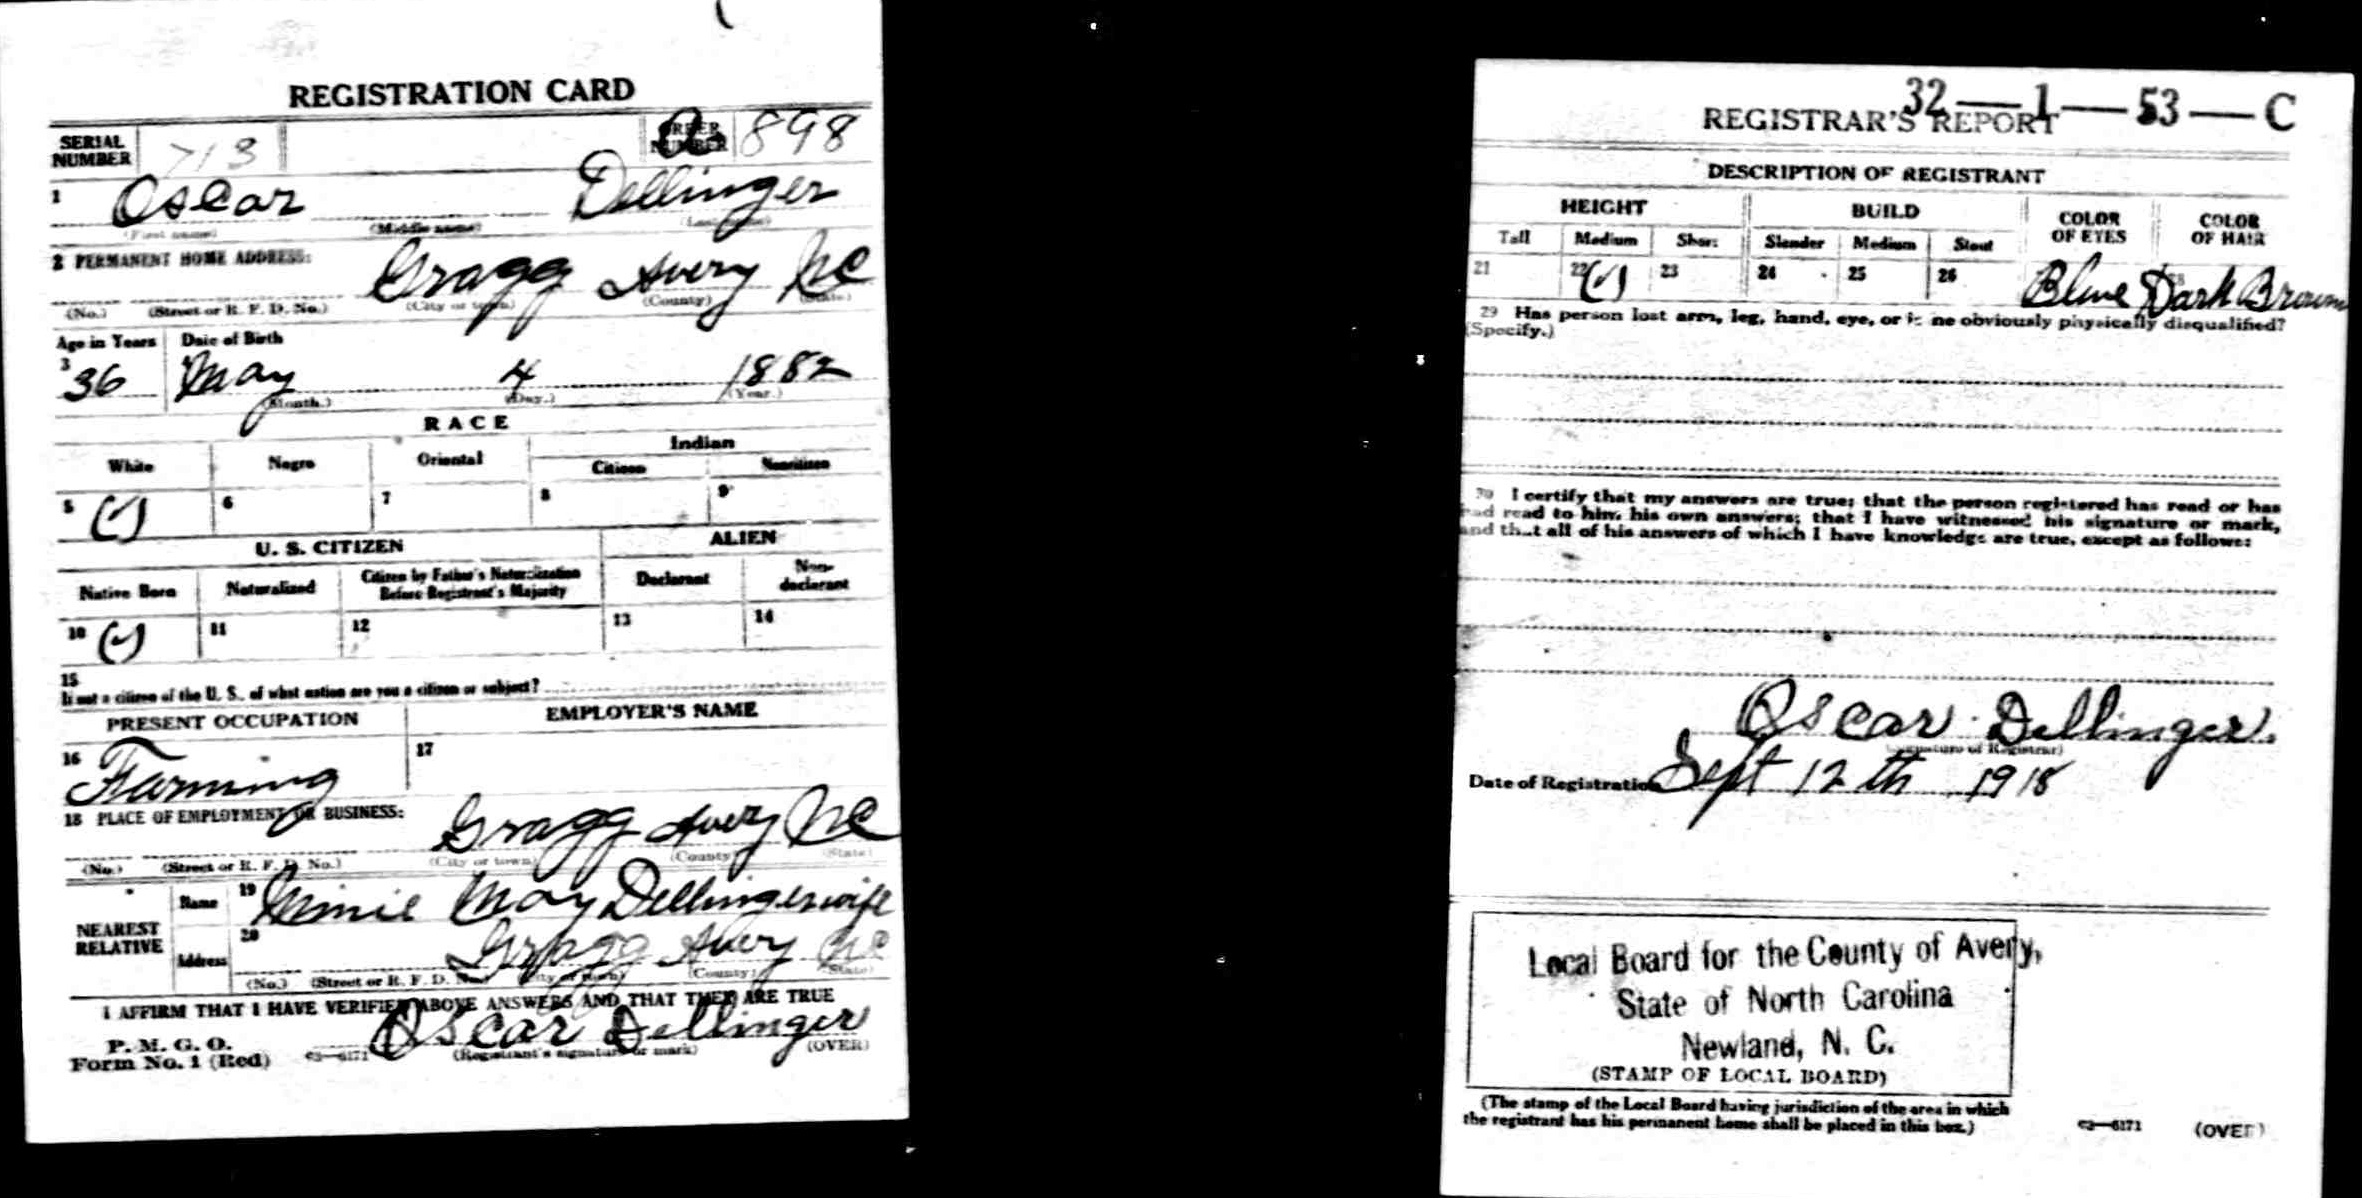 REGISTRATION CARD
SERIAL NUMBER 713 ORDER NUMBER A 898
1 Oscar Dellinger
(First name) (Middle name) (Last name)
2 PERMANENT HOME ADDRESS: Gragg Avery NC
(No.) (Street or R. F. D. No.) (City or town) (County) (State)
Age in Years Date of Birth
3 36 May 4 1882
(Month.) (Day.) (Year.)
RACE
White Negro Oriental Indian
Citizen Noncitizen
5 (✓) 6 7 8 9
U. S. CITIZEN ALIEN
Native Born Naturalized Citizen by Father's Naturalization Before Registrant's Majority Declarant Non-declarant
10 (✓) 11 12 13 14
15
If not a citizen of the U. S., of what nation are you a citizen or subject?
PRESENT OCCUPATION EMPLOYER'S NAME
16 Farming 17
18 PLACE OF EMPLOYMENT OR BUSINESS: Gragg Avery NC
(No.) (Street or R. F. D. No.) (City or town) (County) (State)
NEAREST RELATIVE
Name 19 Minie May Dellinger wife
Address 20 Gragg Avery NC
(No.) (Street or R. F. D. No.) (City or town) (County) (State)
I AFFIRM THAT I HAVE VERIFIED ABOVE ANSWERS AND THAT THEY ARE TRUE
P. M. G. O.
Form No. 1 (Red) 03—6171 Oscar Dellinger
(Registrant's signature or mark) (OVER)
32—1—53—C
REGISTRAR'S REPORT
DESCRIPTION OF REGISTRANT
HEIGHT BUILD COLOR OF EYES COLOR OF HAIR
Tall Medium Short Slender Medium Stout
21 22 (✓) 23 24 25 26 Blue Dark Brown
29 Has person lost arm, leg, hand, eye, or is he obviously physically disqualified?
(Specify.)
30 I certify that my answers are true; that the person registered has read or has
had read to him his own answers; that I have witnessed his signature or mark,
and that all of his answers of which I have knowledge are true, except as follows:
Oscar Dellinger.
(Signature of Registrar)
Date of Registration Sept 12th 1918
Local Board for the County of Avery,
State of North Carolina
Newland, N. C.
(STAMP OF LOCAL BOARD)
(The stamp of the Local Board having jurisdiction of the area in which
the registrant has his permanent home shall be placed in this box.)
03—6171 (OVER)